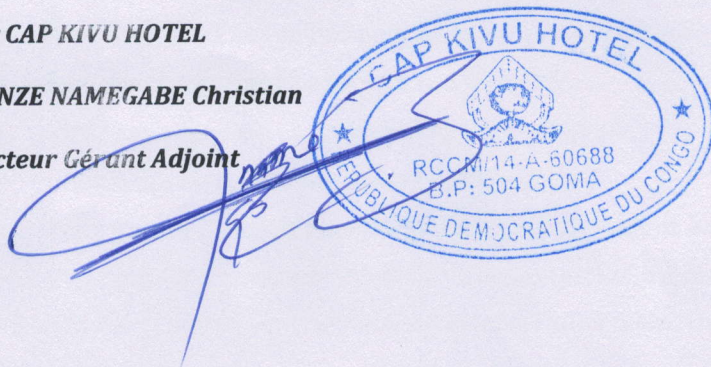 CAP KIVU HOTEL
NZE NAMEGABE Christian
cteur Gérant Adjoint
CAP KIVU HOTEL
RCCM/14-A-60688
B.P: 504 GOMA
REPUBLIQUE DEMOCRATIQUE DU CONGO